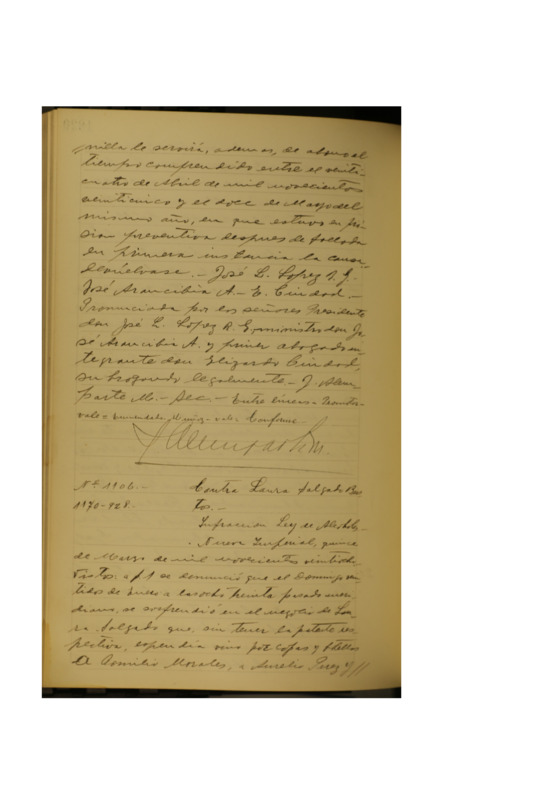 milla le servirá, ademas, de abono el
tiempo comprendido entre el veinti-
cuatro de Abril de mil novecientos
veinticinco y el doce de Mayo del
mismo año, en que estuvo en pri-
sion preventiva despues de fallada
en primera instancia la causa.
Devuélvase.- José L. Lopez
José Arancibia A.- E. Cindod.-
Pronunciada por los señores Presidente
don José L. Lopez R. ministro don Jo-
sé Arancibia A. y primer abogado in-
tegrante don Elizardo Cindod,
subrogando legalmente.- J.
parte M.- Sec.- Entre lineas =
vale = enmendado = vale = Conforme.
Nº 1906.- Contra Laura Salgado Bas-
1970-928. tos.-
Infraccion Ley de Alcoholes.-
Nueva Imperial, quince
de Marzo de mil novecientos veintiocho.
Vistos: a f. 1 se denunció que el Domingo vein-
tidos de a las ocho treinta pasado meri-
diano, se sorprendió en el negocio de Lau-
ra Salgado que, sin tener la patente res-
pectiva, expendia vino por copas y
a Morales, a Aurelio Perez y //